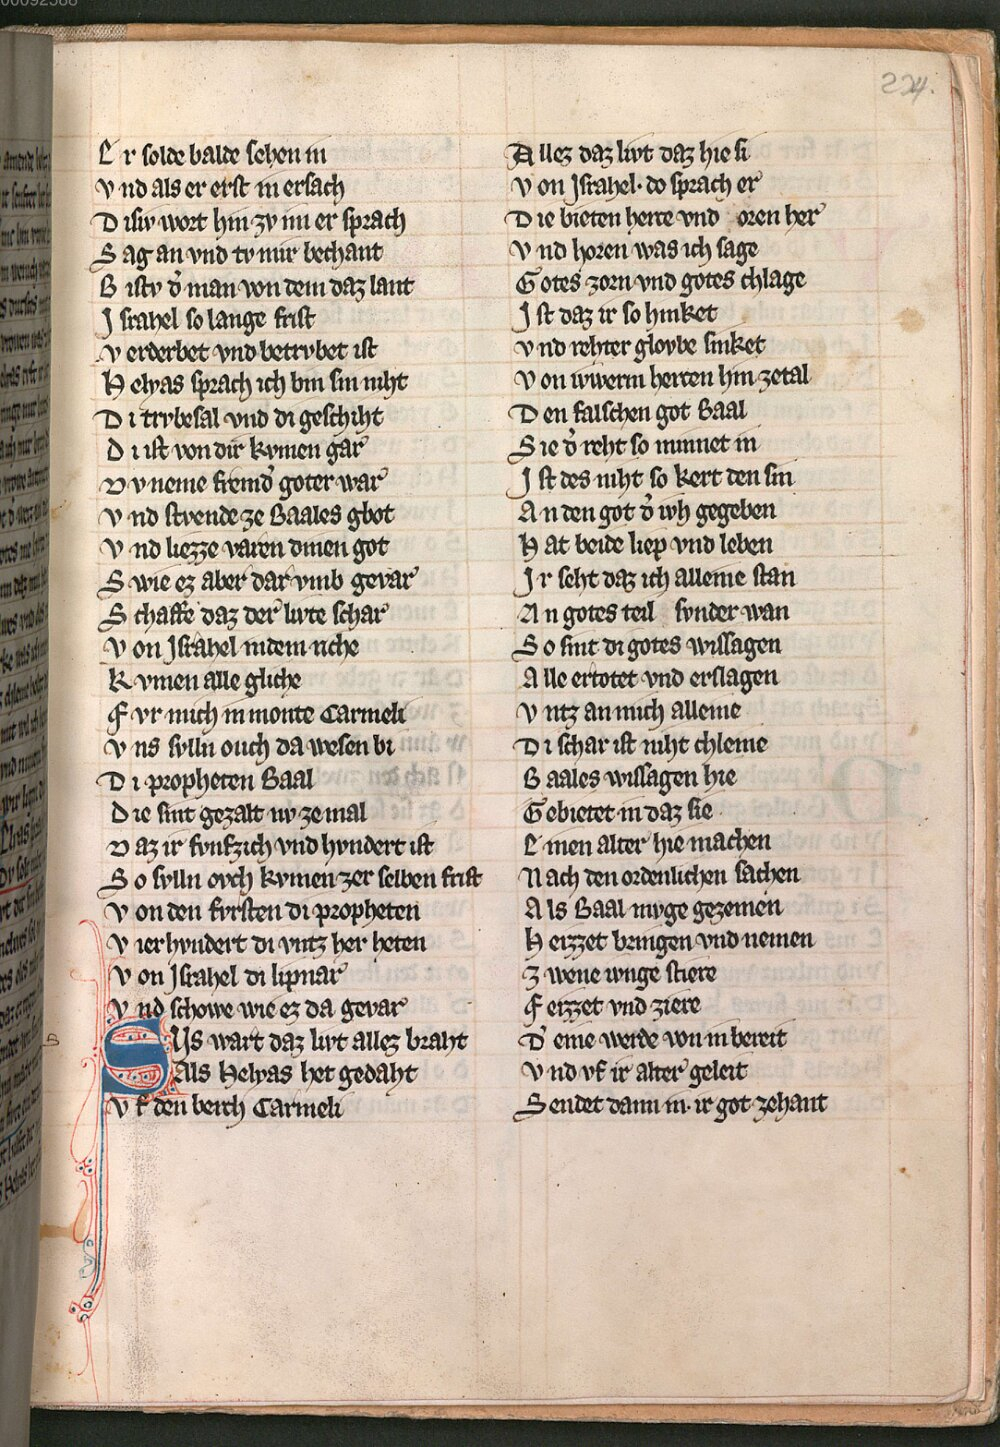 00092588
224.
E r solde balde sehen in
V nd als er erst in ersach
D isiv wort hin zv im er sprach
S ag an vnd tv mir bechant
B istv d̓ man von dem daz lant
J srahel so lange frist
V erderbet vnd betrvbet ist
H elyas sprach ich bin sin niht
D i trvbesal vnd di geschiht
D i ist von dir kvmen gar
D v neme fremd̓ goter war
V nd stvende ze Baales gbot
V nd liezze varen dinen got
S wie ez aber dar vmb gevar
S chaffe daz der livte schar
V on Jsrahel in dem riche
K vmen alle gliche
F vr mich in monte Carmeli
V ns svlln ouch da wesen bi
D i propheten Baal
D ie sint gezalt nv ze mal
D az ir fvnfzich vnd hvndert ist
S o svlln ovch kvmen zer selben frist
V on den fvrsten di propheten
V ier hvndert di vntz her heten
V on Jsrahel di lipnar
V nd schowe wie ez da gevar
S Vs wart daz livt allez braht
Als Helyas het gedaht
V f den berch Carmeli
A llez daz livt daz hie si
V on Jsrahel· do sprach er
D ie bieten herte vnd oren her
V nd horen was ich sage
G otes zorn vnd gotes chlage
J st daz ir so hinket
V nd rehter glovbe sinket
V on iwerm herten hin zetal
D en falschen got Baal
S ie d̓ reht so minnet in
J st des niht so kert den sin
A n den got d̓ iwh gegeben
H at beide liep vnd leben
J r seht daz ich alleine stan
A n gotes teil svnder wan
S o sint di gotes wissagen
A lle ertotet vnd erslagen
V ntz an mich alleine
D i schar ist niht chleine
B aales wissagen hie
G ebietet in daz sie
E inen alter hie machen
N ach den ordenlichen sachen
A ls Baal mvge gezemen
H eizzet bringen vnd nemen
Z wene ivnge stiere
F eizzet vnd ziere
D̓ eine werde von in bereit
V nd vf ir alter geleit
S endet dann in· ir got zehant